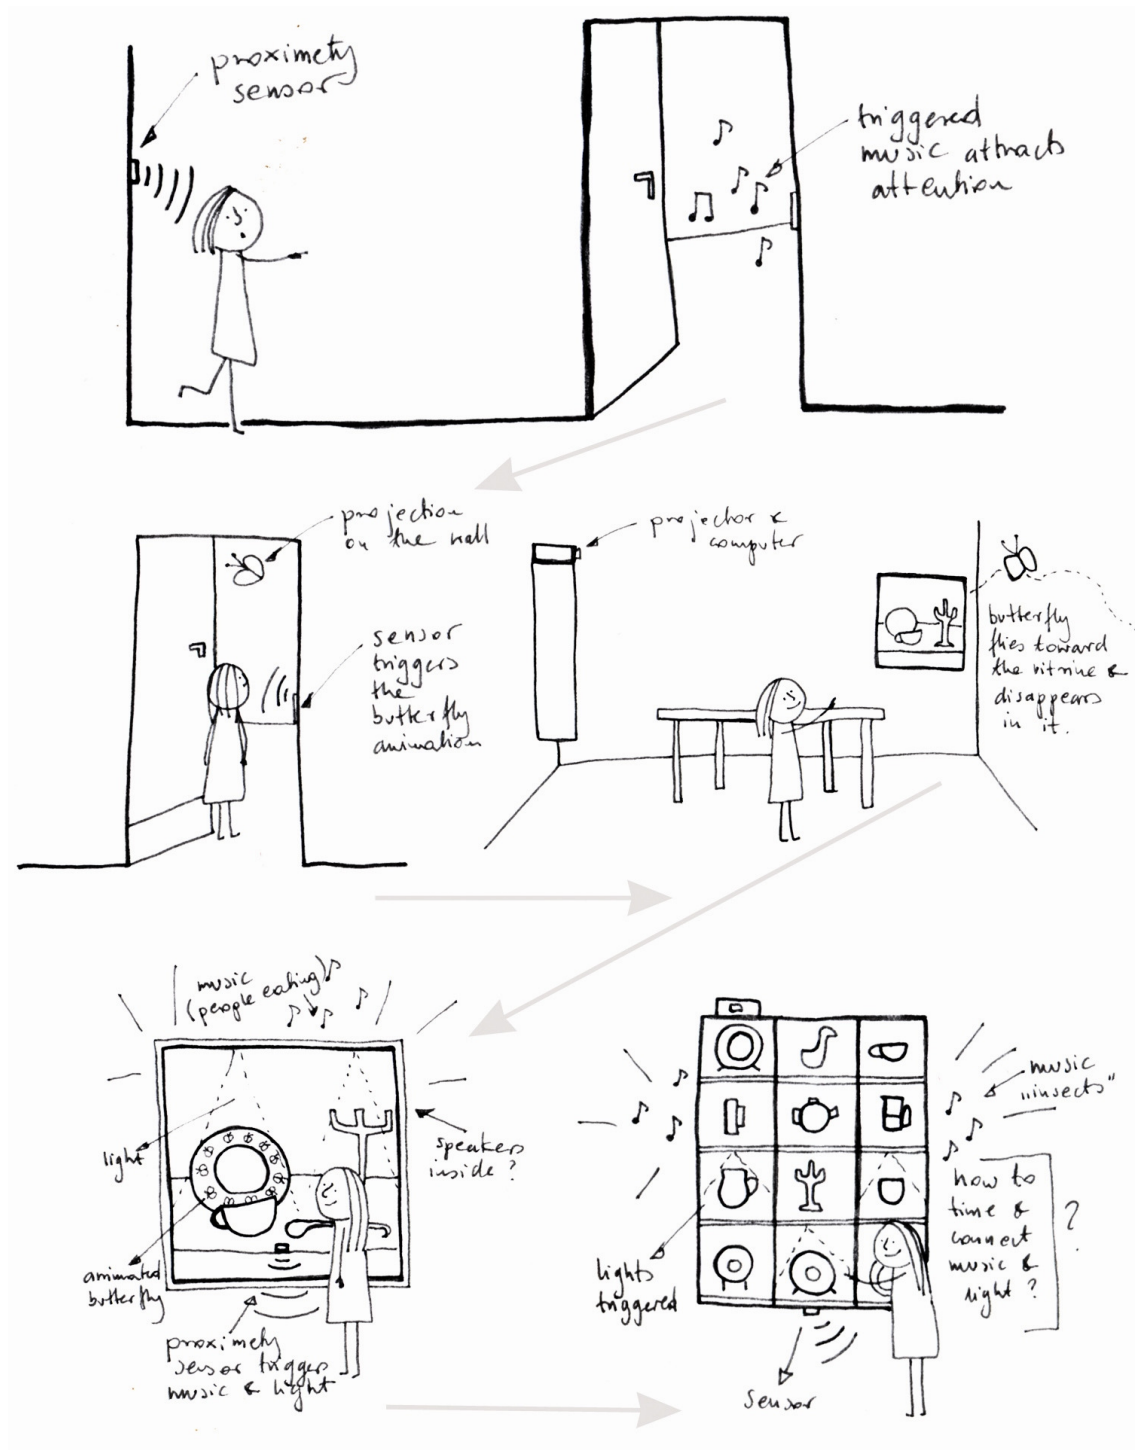 proximety
sensor
triggered
music attracts
attention
projection
on the wall
sensor
triggers
the
butterfly
animation
projector &
computer
butterfly
flies toward
the vitrine &
disappears
in it.
music
(people eating)
light
animated
butterfly
speakers
inside?
proximety
sensor triggers
music & light
music
„insects"
how to
time &
connect
music &
light ?
?
lights
triggered
sensor